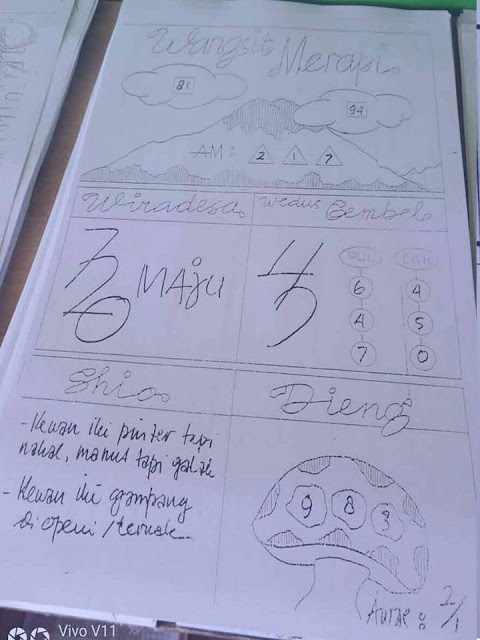 Wangsit
Merapi
81
94
AM : 2 1 7
Wiradesa
Wedus Gembel
MAJU
PUL. EKR.
6 4
4 5
7 0
Shio
Dieng
- Kewan iki pinter tapi
nakal, manut tapi galak
- Kewan iki gampang
di openi / ternak...
9 8 3
2/1
Vivo V11